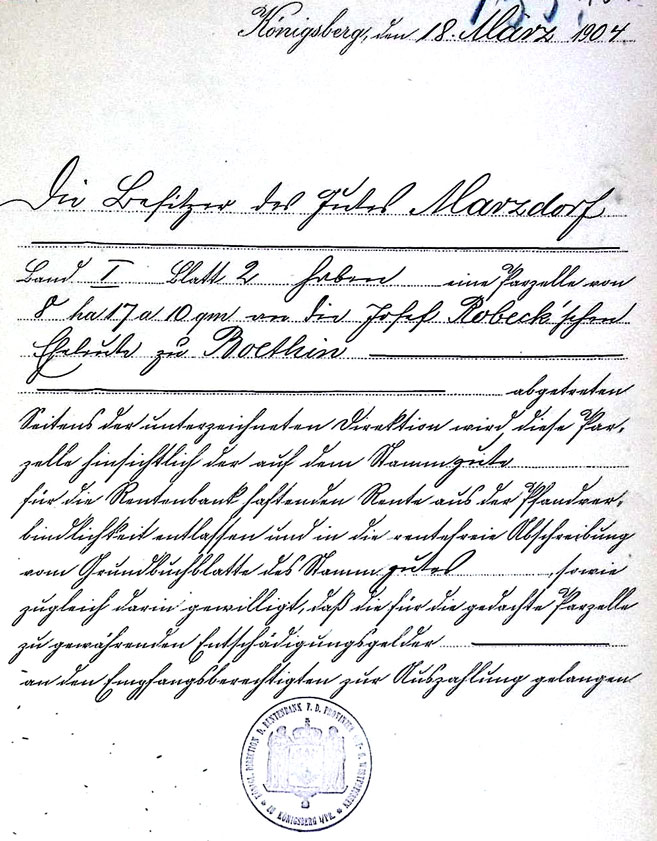 Königsberg, den 18. März 1904.
Die Besitzer des Gutes Marzdorf
Band I Blatt 2 haben eine Parzelle von
8 ha 17 a 10 qm an die Josef Robeck'schen
Eheleute zu
abgetreten
Seitens der unterzeichneten Direktion wird diese Par-
zelle hinsichtlich der auf dem Stammgute
für die Rentenbank haftenden Rente aus der Pfandver-
bindlichkeit entlassen und in die rentefreie Abschreibung
vom Grundbuchblatte des Stammgutes, sowie
zugleich darin gewilligt, daß die für die gedachte Parzelle
zu gewährenden Entschädigungsgelder
an den Empfangsberechtigten zur Auszahlung gelangen
DIREKTION D. RENTENBANK F. D. PROVINZEN
KÖNIGSBERG I/PR.